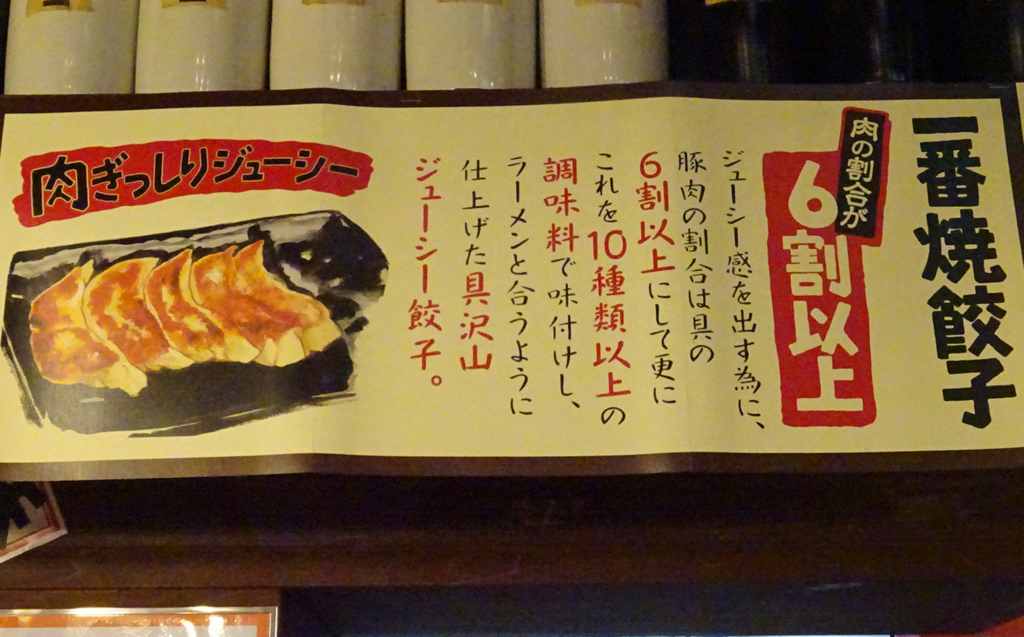 一番焼餃子
肉の割合が
6割以上
ジューシー感を出す為に、
豚肉の割合は具の
6割以上にして更に
これを10種類以上の
調味料で味付けし、
ラーメンと合うように
仕上げた具沢山
ジューシー餃子。
肉ぎっしりジューシー